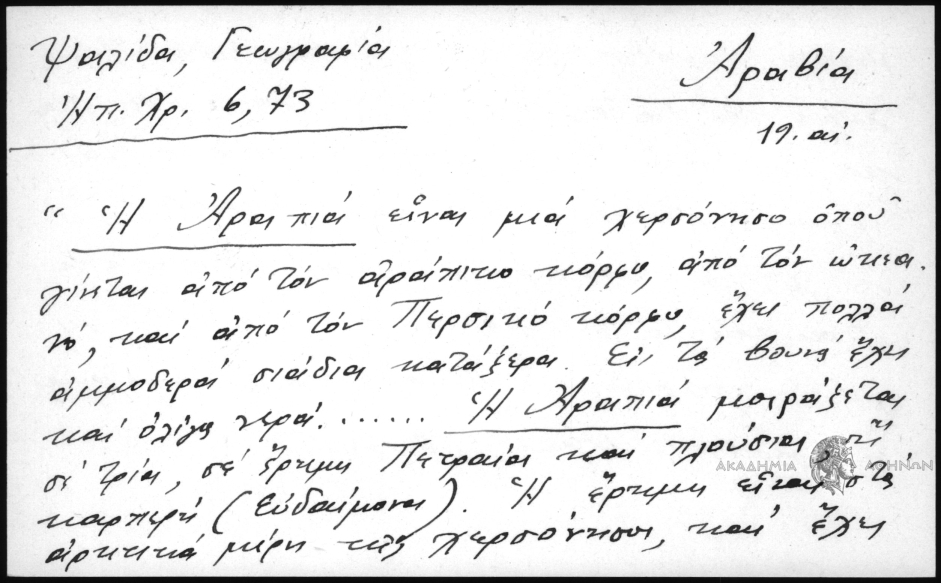 Ψαλίδα, Γεωγραφία
Ἠπ. Χρ. 6, 73
Ἀραβία
19. αἰ.
"Ἡ Ἀραπιά εἶναι μιά χερσόνησο ὁποῦ
γίνεται ἀπό τόν ἀράπικο κόρφο, ἀπό τόν ὠκεα-
νό, καί ἀπό τόν Περσικό κόρφο, ἔχει πολλά
ἀμμοδερά σιάδια κατάξερα. Εἰς τά βουνά ἔχει
καί ὀλίγα νερά....... Ἡ Ἀραπιά μοιράζεται
σέ τρία, σέ ἔρημη Πετραία καί πλούσια, ἤ
ΑΚΑΔΗΜΙΑ ΑΘΗΝΩΝ
καρπερή (Εὐδαίμονα). Ἡ ἔρημη εἶναι στά
ἀρκτικά μέρη τῆς χερσόνησος, καί ἔχει